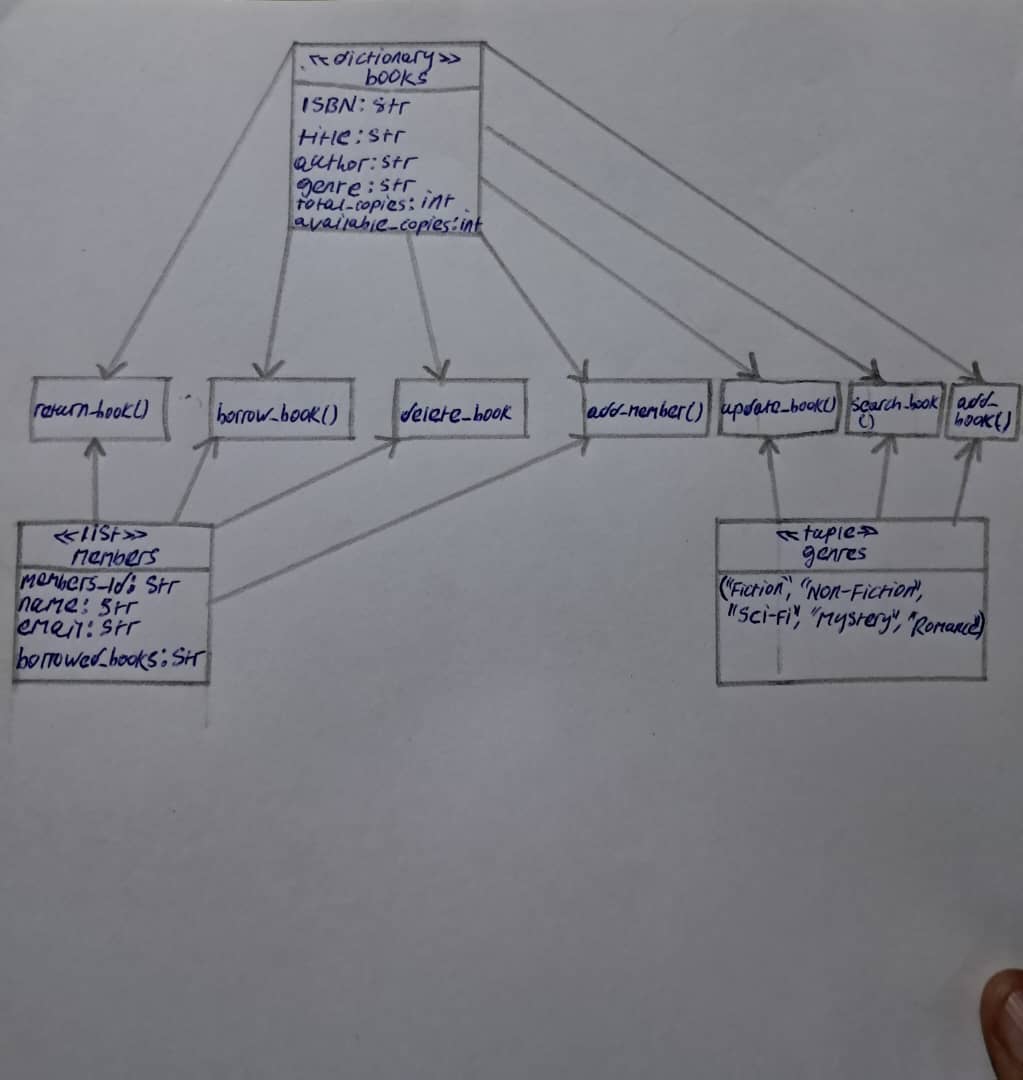 <<dictionary>>
books
ISBN: str
title: str
author: str
genre: str
total_copies: int
available_copies: int
return_book()
borrow_book()
delete_book
add_member()
update_book()
search_book
()
add_
book()
<<list>>
members
members_Id: str
name: str
email: str
borrowed_books: str
<<tuple>>
genres
("Fiction", "Non-Fiction",
"Sci-Fi", "Mystery", "Romance")